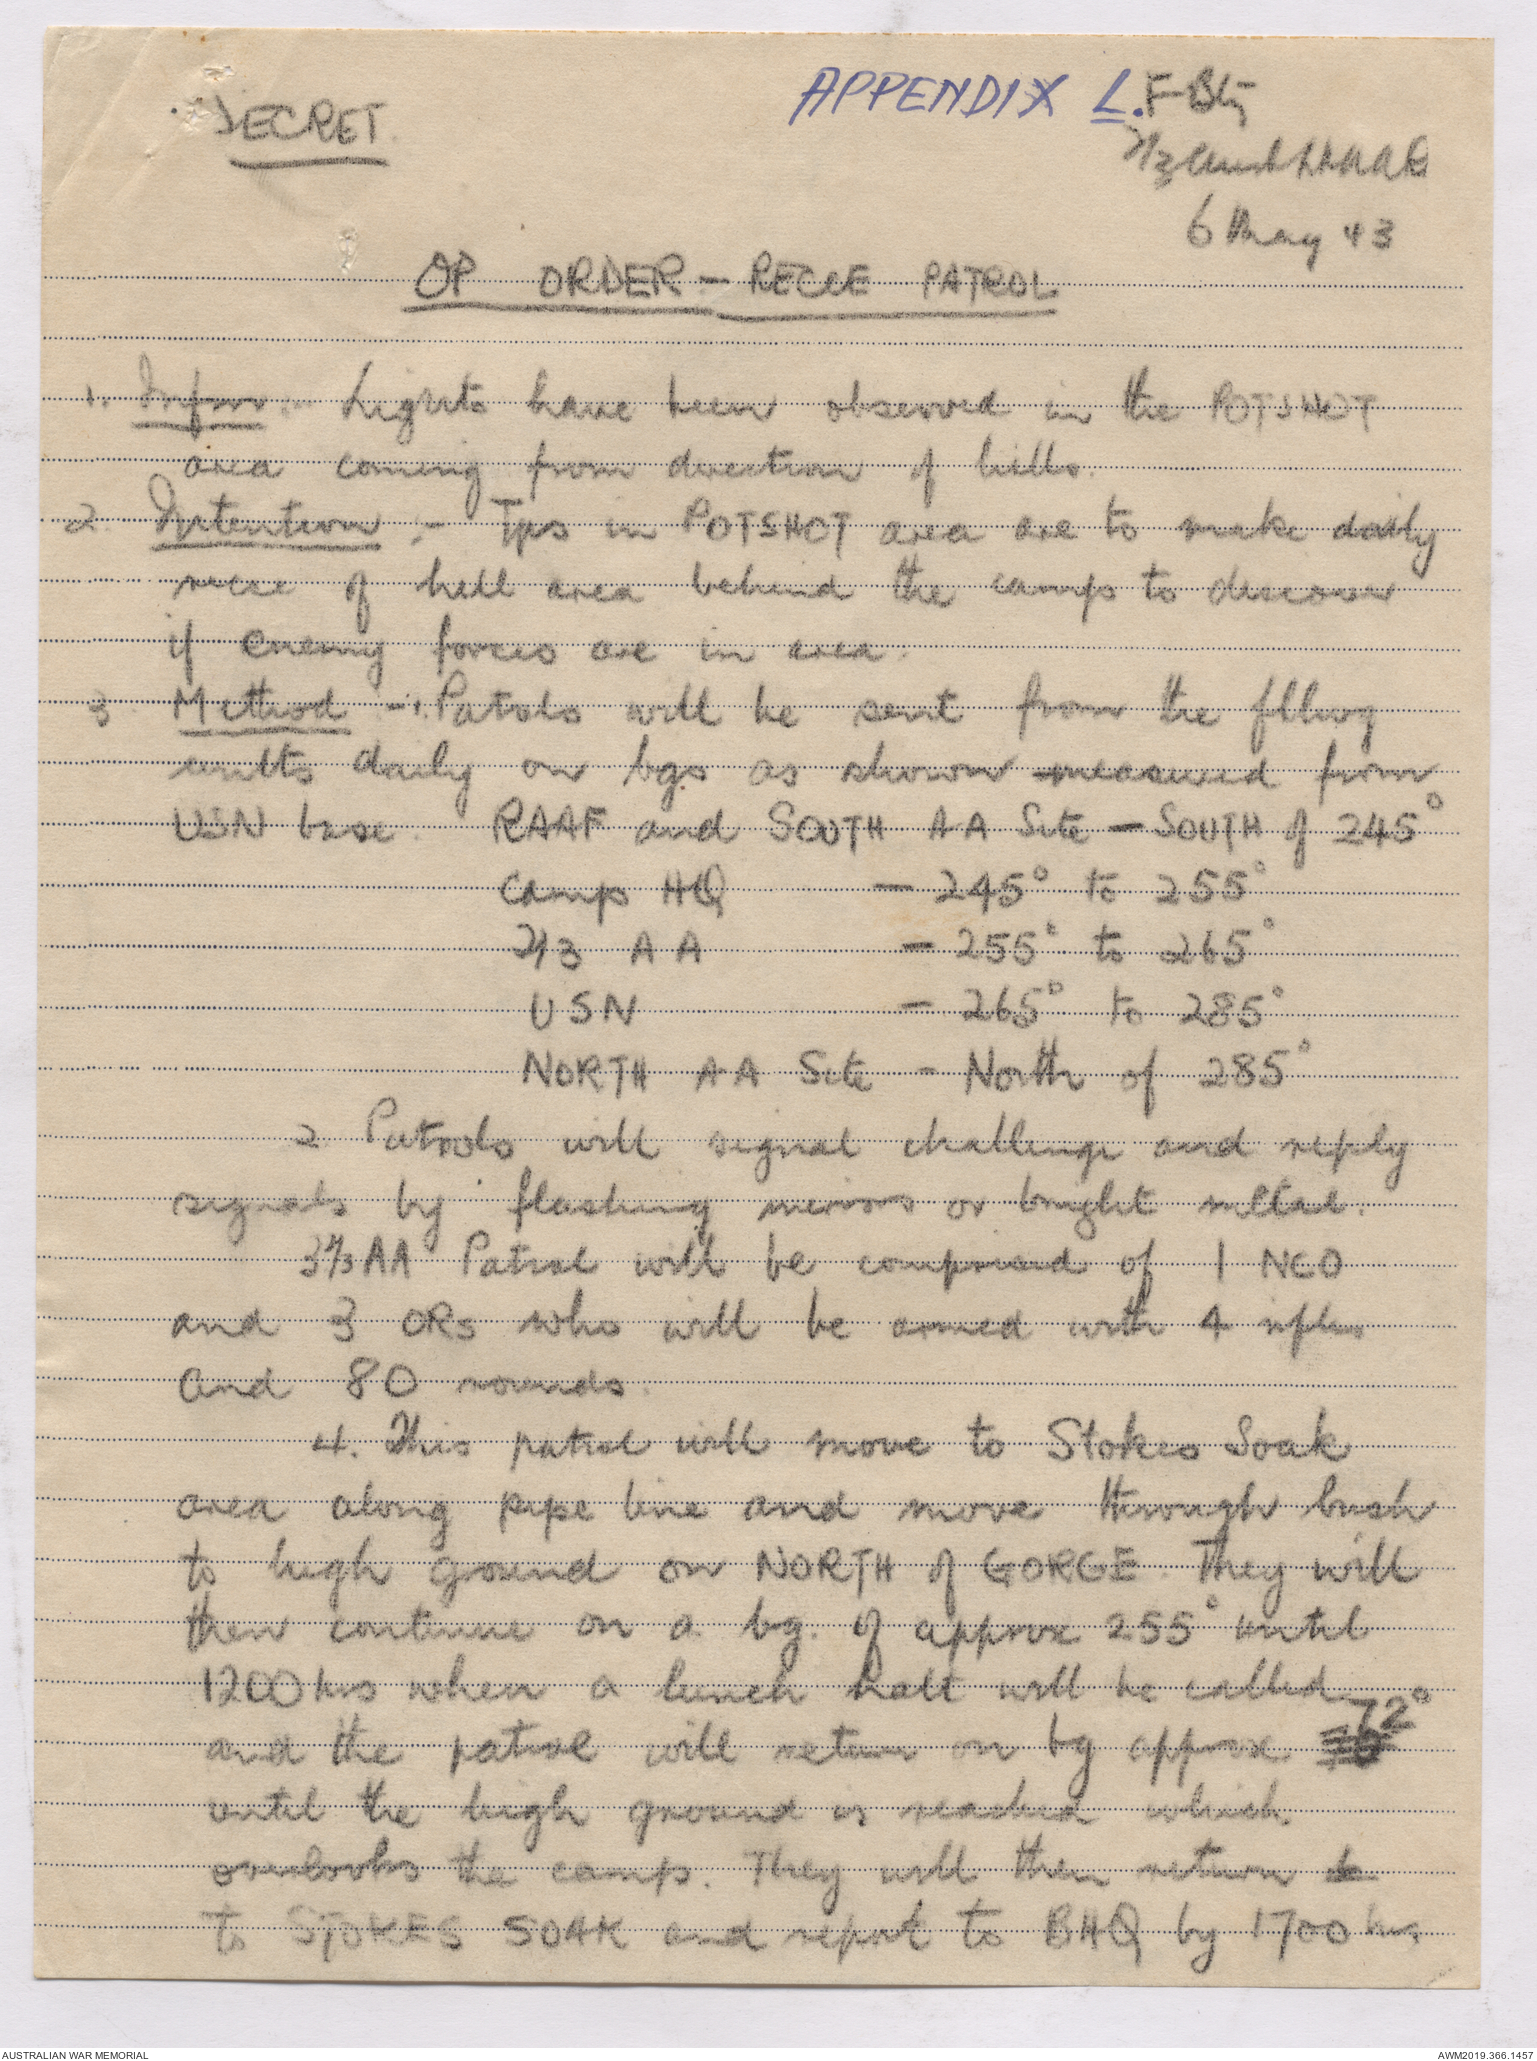 SECRET
APPENDIX L. F Bty
2/3 Aust LAAR
6 May 43
OP ORDER - RECCE PATROL
1. Infm :- Lights have been observed in the POTSHOT
area coming from direction of hills.
2. Intention :- Tps in POTSHOT area are to make daily
recce of hill area behind the camps to discover
if enemy forces are in area.
3. Method :- 1. Patrols will be sent from the fllwg
units daily on bgs as shown measured from
USN base. RAAF and SOUTH AA Site - SOUTH of 245°
Camp HQ - 245° to 255°
2/3 AA - 255° to 265°
USN - 265° to 285°
NORTH AA Site - North of 285°
2. Patrols will signal challenge and reply
signals by flashing mirrors or bright metal.
3 2/3 AA Patrol will be comprised of 1 NCO
and 3 ORs who will be armed with 4 rifles
and 80 rounds.
4. This patrol will move to Stokes Soak
area along pipe line and move through bush
to high ground on NORTH of GORGE. They will
then continue on a bg. of approx 255° until
1200 hrs when a lunch halt will be called
and the patrol will return on bg approx 72°
until the high ground is reached which
overlooks the camp. They will then return
to STOKES SOAK and report to BHQ by 1700 hrs
AUSTRALIAN WAR MEMORIAL
AWM2019.366.1457